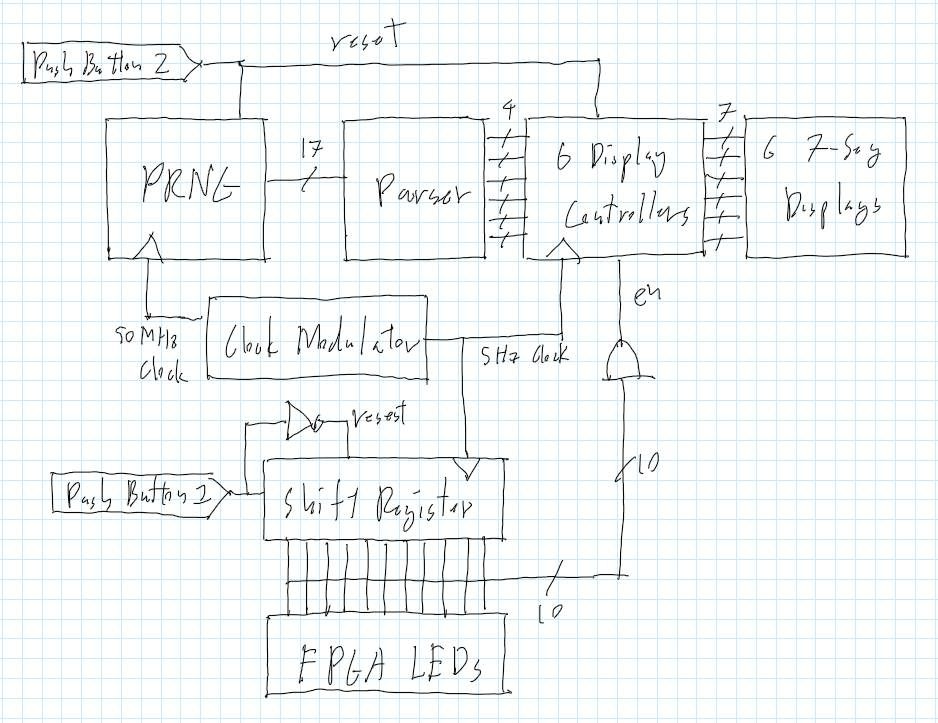 reset
Push Button 2
4
7
17
PRNG
Parser
6 Display
Controllers
6 7-Seg
Displays
en
50 MHz
Clock
Clock Modulator
5Hz Clock
reset
10
Push Button 1
Shift Register
10
FPGA LEDs